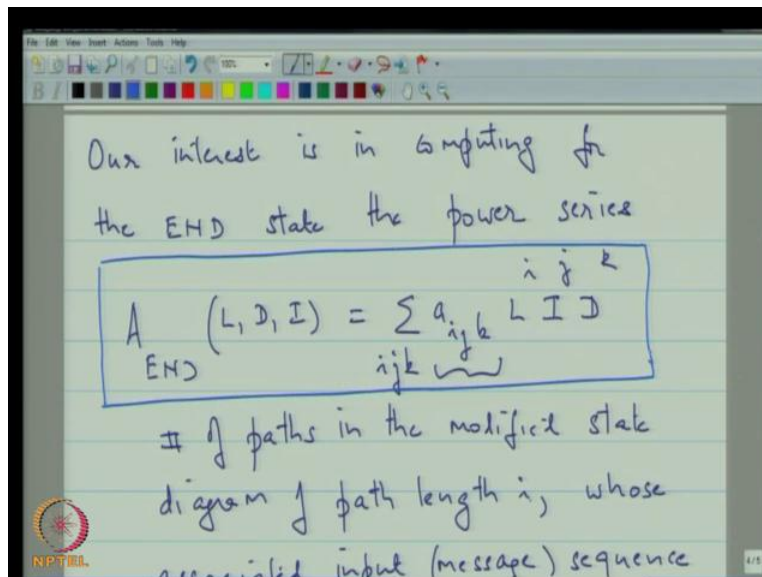 File Edit View Insert Actions Tools Help
100%
B I
Our interest is in computing for
the END state the power series
A_END (L, D, I) = Σ_ijk a_ijk L^i I^j D^k
# of paths in the modified state
diagram of path length i, whose
associated input (message) sequence
NPTEL